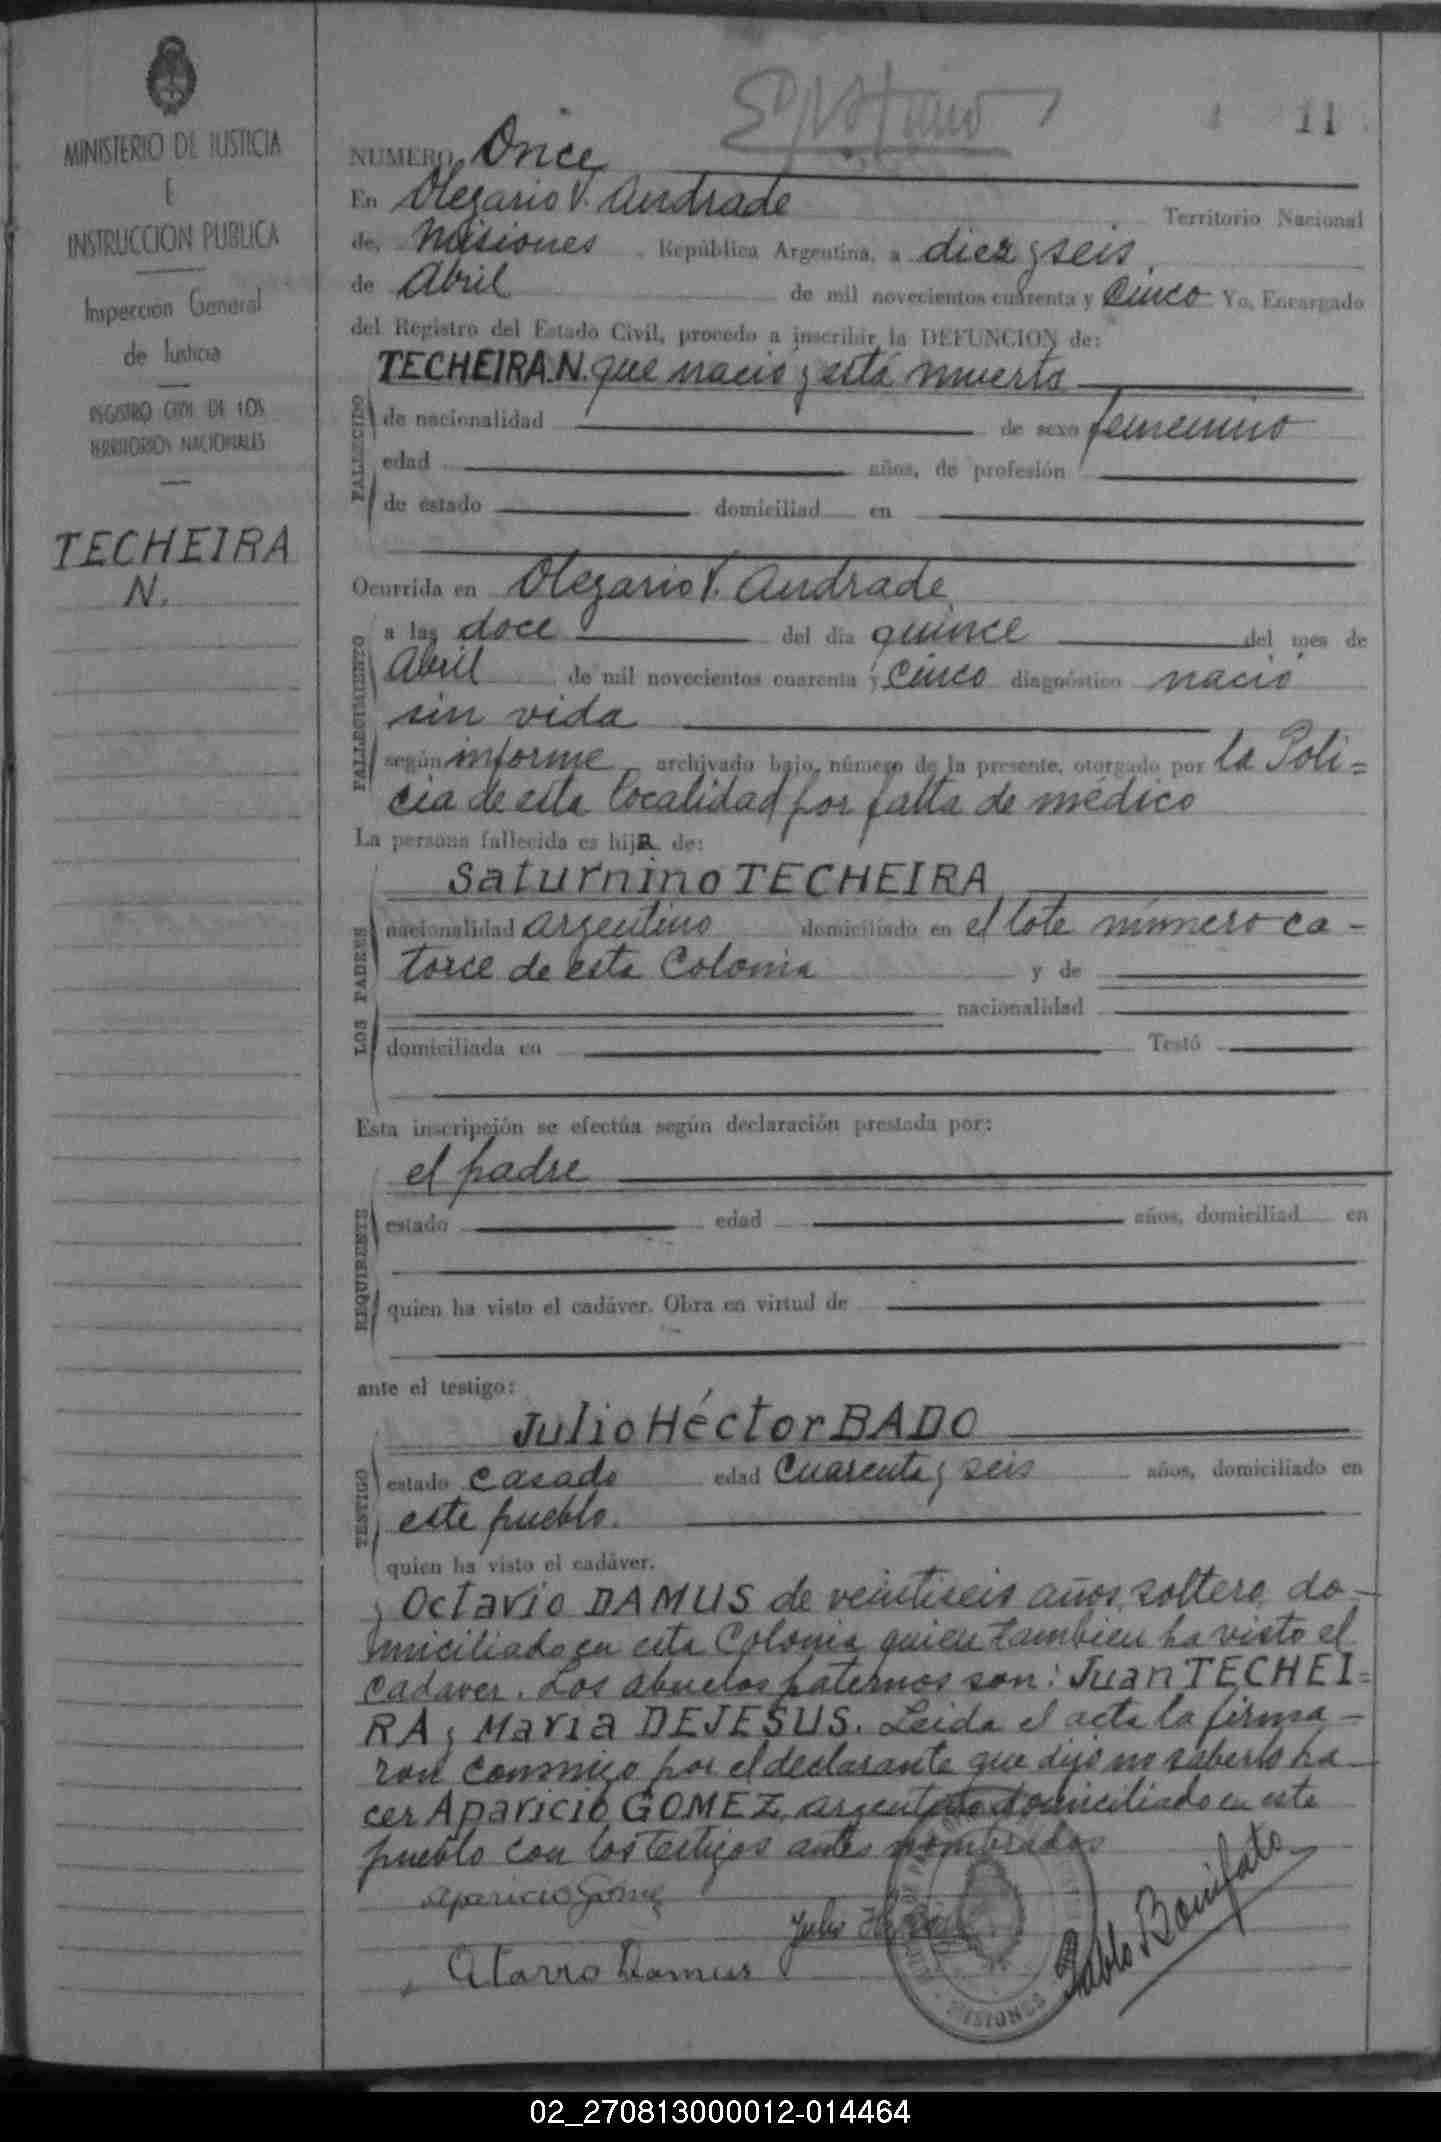 MINISTERIO DE JUSTICIA
E
INSTRUCCION PUBLICA
Inspección General
de Justicia
REGISTRO CIVIL DE LOS
TERRITORIOS NACIONALES
TECHEIRA
N.
11
NUMERO Once
En Olegario V. Andrade Territorio Nacional
de Misiones República Argentina, a diez y seis
de Abril de mil novecientos cuarenta y Cinco Yo, Encargado
del Registro del Estado Civil, procedo a inscribir la DEFUNCION de:
TECHEIRA.N. que nació y está muerta
FALLECIDO
de nacionalidad de sexo femenino
edad años, de profesión
de estado domiciliad en
Ocurrida en Olegario V. Andrade
FALLECIMIENTO
a las doce del día quince del mes de
Abril de mil novecientos cuarenta y Cinco diagnóstico nació
sin vida
según informe archivado bajo número de la presente, otorgado por la Poli=
cía de esta localidad por falta de médico
La persona fallecida es hija de:
LOS PADRES
Saturnino TECHEIRA
nacionalidad argentino domiciliado en el lote número ca-
torce de esta Colonia y de
nacionalidad
domiciliada en Testó
Esta inscripción se efectúa según declaración prestada por:
REQUIRENTE
el padre
estado edad años, domiciliad en
quien ha visto el cadáver. Obra en virtud de
ante el testigo:
TESTIGO
Julio Héctor BADO
estado casado edad Cuarenta y seis años, domiciliado en
este pueblo.
quien ha visto el cadáver.
y Octavio DAMUS de veintiseis años, soltero, do-
miciliado en esta Colonia quien tambien ha visto el
cadaver. Los abuelos paternos son: Juan TECHEI=
RA y Maria DEJESUS. Leida el acta la firma-
ron conmigo por el declarante que dijo no saberlo ha-
cer Aparicio GOMEZ, argentino domiciliado en este
pueblo con los testigos antes nombrados
Aparicio Gomez
Julio H. Bado
Otavio Damus
Pablo Bonifato
MISIONES
02_270813000012-014464